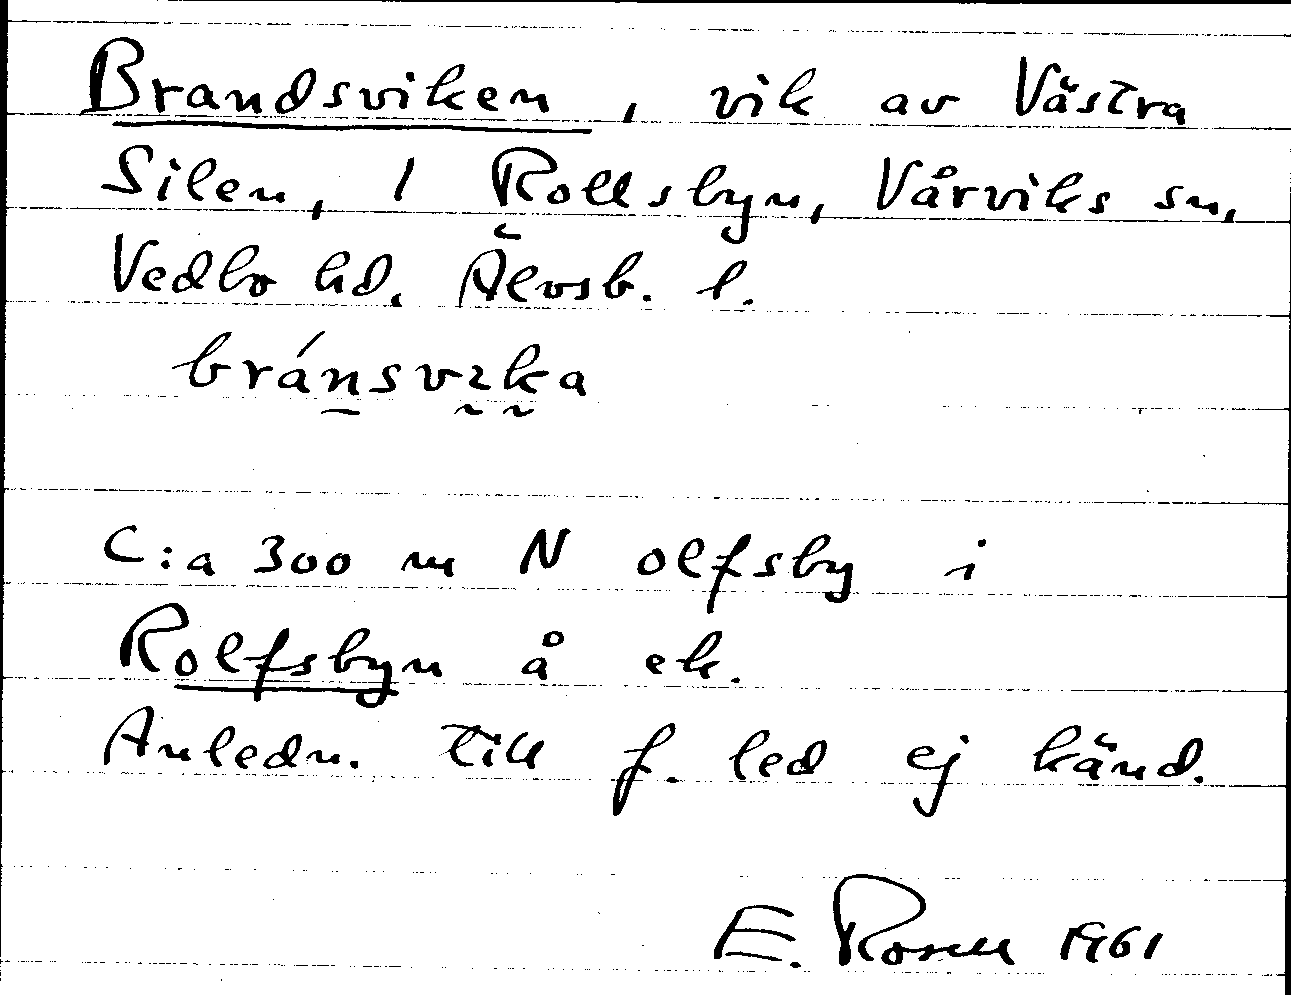 Brandsviken, vik av Västra
Silen, / Rollsbyn, Vårviks sn,
Vedbo hd. Älvsb. l.
bránsvıka
C:a 300 m N olfsby i
Rolfsbyn å ek.
Anledn. till f. led ej känd.
E. Rosell 1961